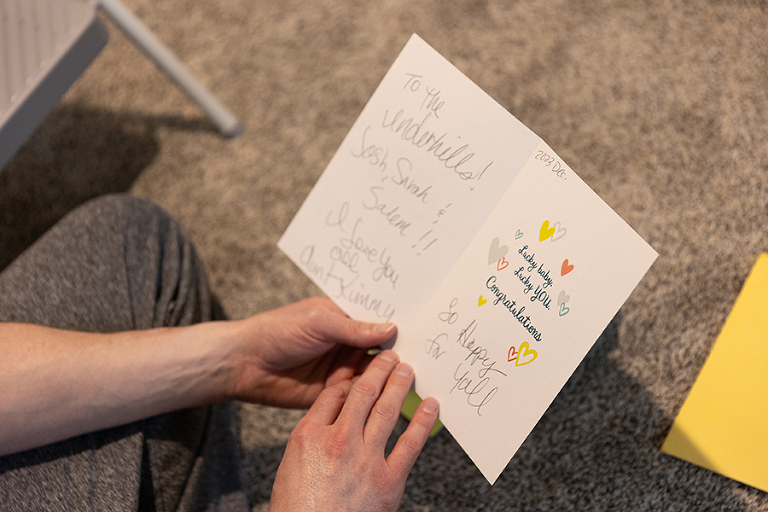 To the
Underhills!
Josh, Sarah &
Salem!!
I love you
all,
Aunt Kimmy
2023 Dec.
Lucky baby,
Lucky YOU.
Congratulations
So Happy
for
Yall